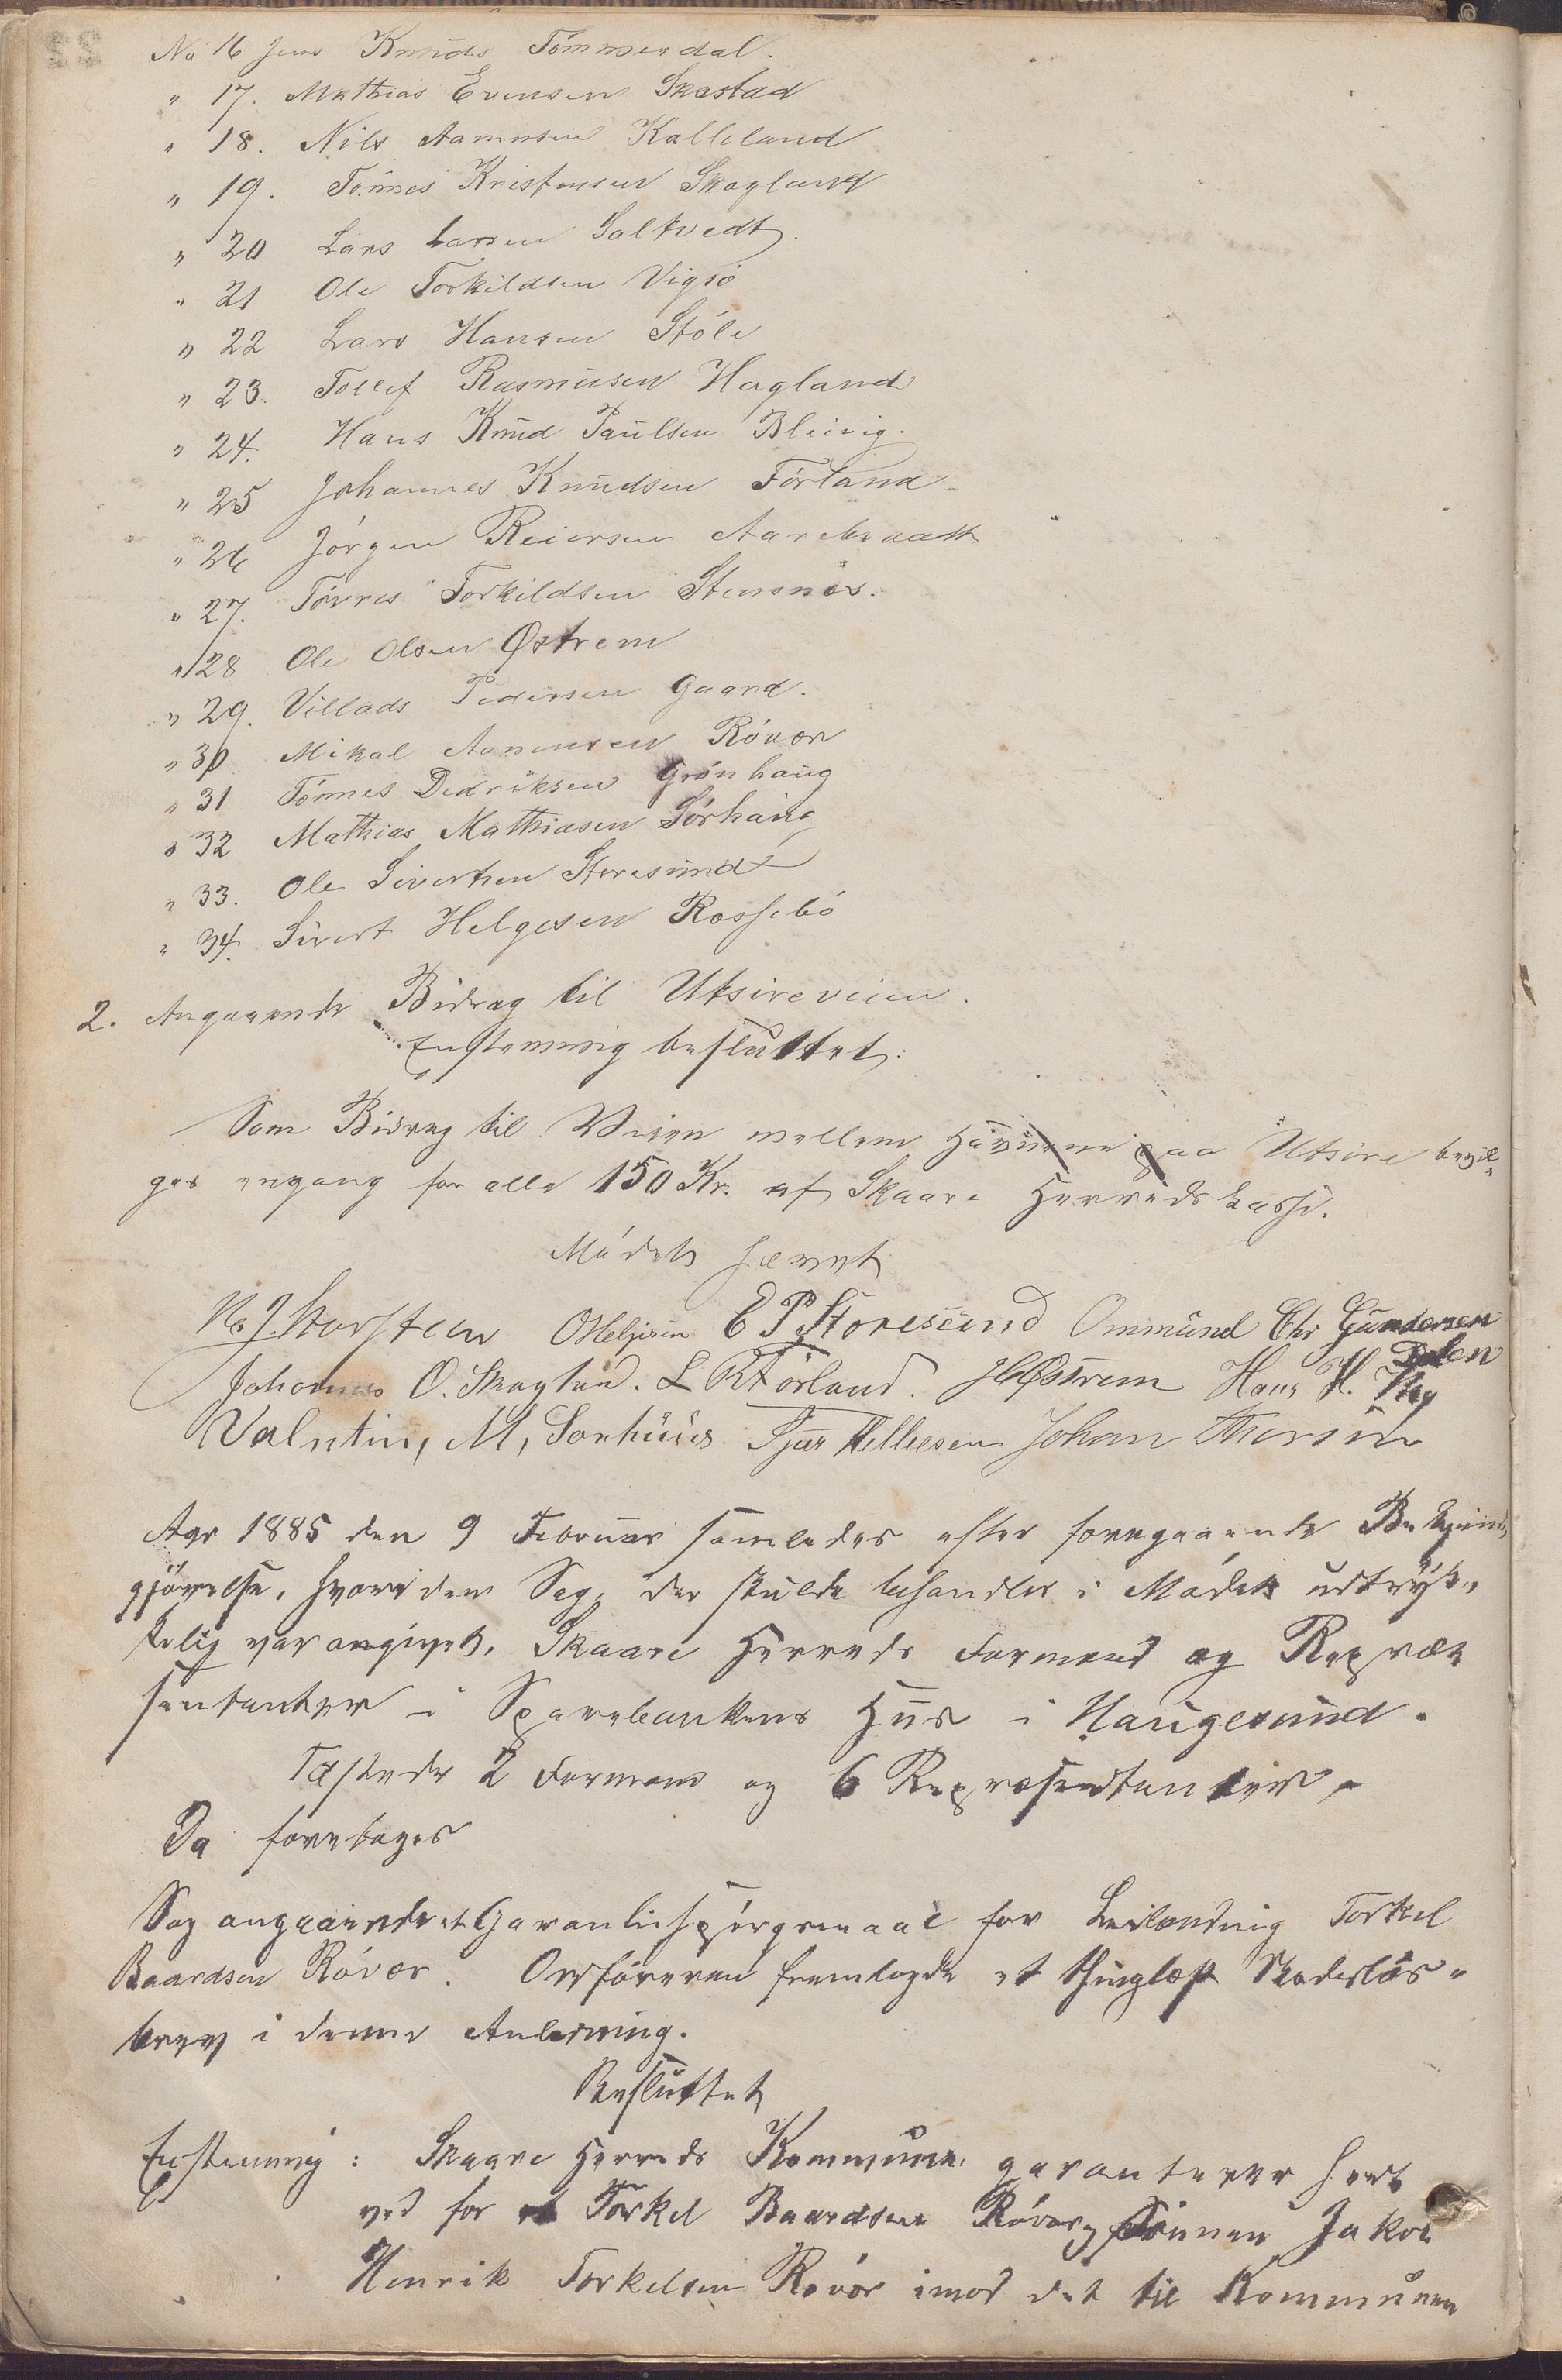 No 16 Jens Knuds Tömmerdal.
" 17. Mathias Evensen Skastad
" 18. Nils Aamnsen Kalleland
" 19. Tönnes Kristensen Skogland
" 20 Lars Larsen Saltvedt.
" 21 Ole Torkildsen Vigsö
" 22 Lars Hansen Stöle
" 23. Tollef Rasmusen Hagland
" 24. Hans Knud Paulsen Bleivig.
" 25 Johannes Knudsen Förland
" 26 Jörgen Reiersen Aarebraadt
" 27. Törres Torkildsen Stensnes.
" 28 Ole Olsen Østrem
" 29. Villads Pedersen Gaard.
" 30 Mikal Aamensen Rövær
" 31 Tönnes Dedriksen Grönhaug
" 32 Mathias Mathiasen Sörhaug
" 33. Ole Sivertsen Storesund
" 34. Sivert Helgesen Rossebö
2. Angaaende Bidrag til Utsireveien.
Enstemmig besluttet:
Som Bidrag til Veien mellem Havnene paa Utsire bevil-
ges engang for alle 150 Kr. af Skaare Herredskasse.
Mödet hævet
E P Storesund Ommund Chr Gundersen
Johannes O. Skogland. L K Förland. Østrem Hans H.
Valentin, M, Sörhuus Johan Thorsen
Aar 1885 den 9 Februar samledes efter foregaaende Bekjendt-
gjörelse, hvori den Sag, der skulde behandles i Mödet udtryk-
kelig var angivet, Skaare Herreds Formænd og Repræ-
sentanter i Sparebankens Hus i Haugesund.
Tilstede 2 Formænd og 6 Repræsentanter.
Da foretoges
Sag angaaende et Garantispörgsmaal for Leilænding Torkel
Baardsen Rövær. Ordföreren fremlagde et thinglæst Skadeslös-
brev i denne Anledning.
Besluttet
Enstemmig: Skaare Herreds Kommune garanterer her-
ved for Torkel Baardsen Rövær, Sönnen Jakob
Henrik Torkelsen Rövær imod det til Kommunen